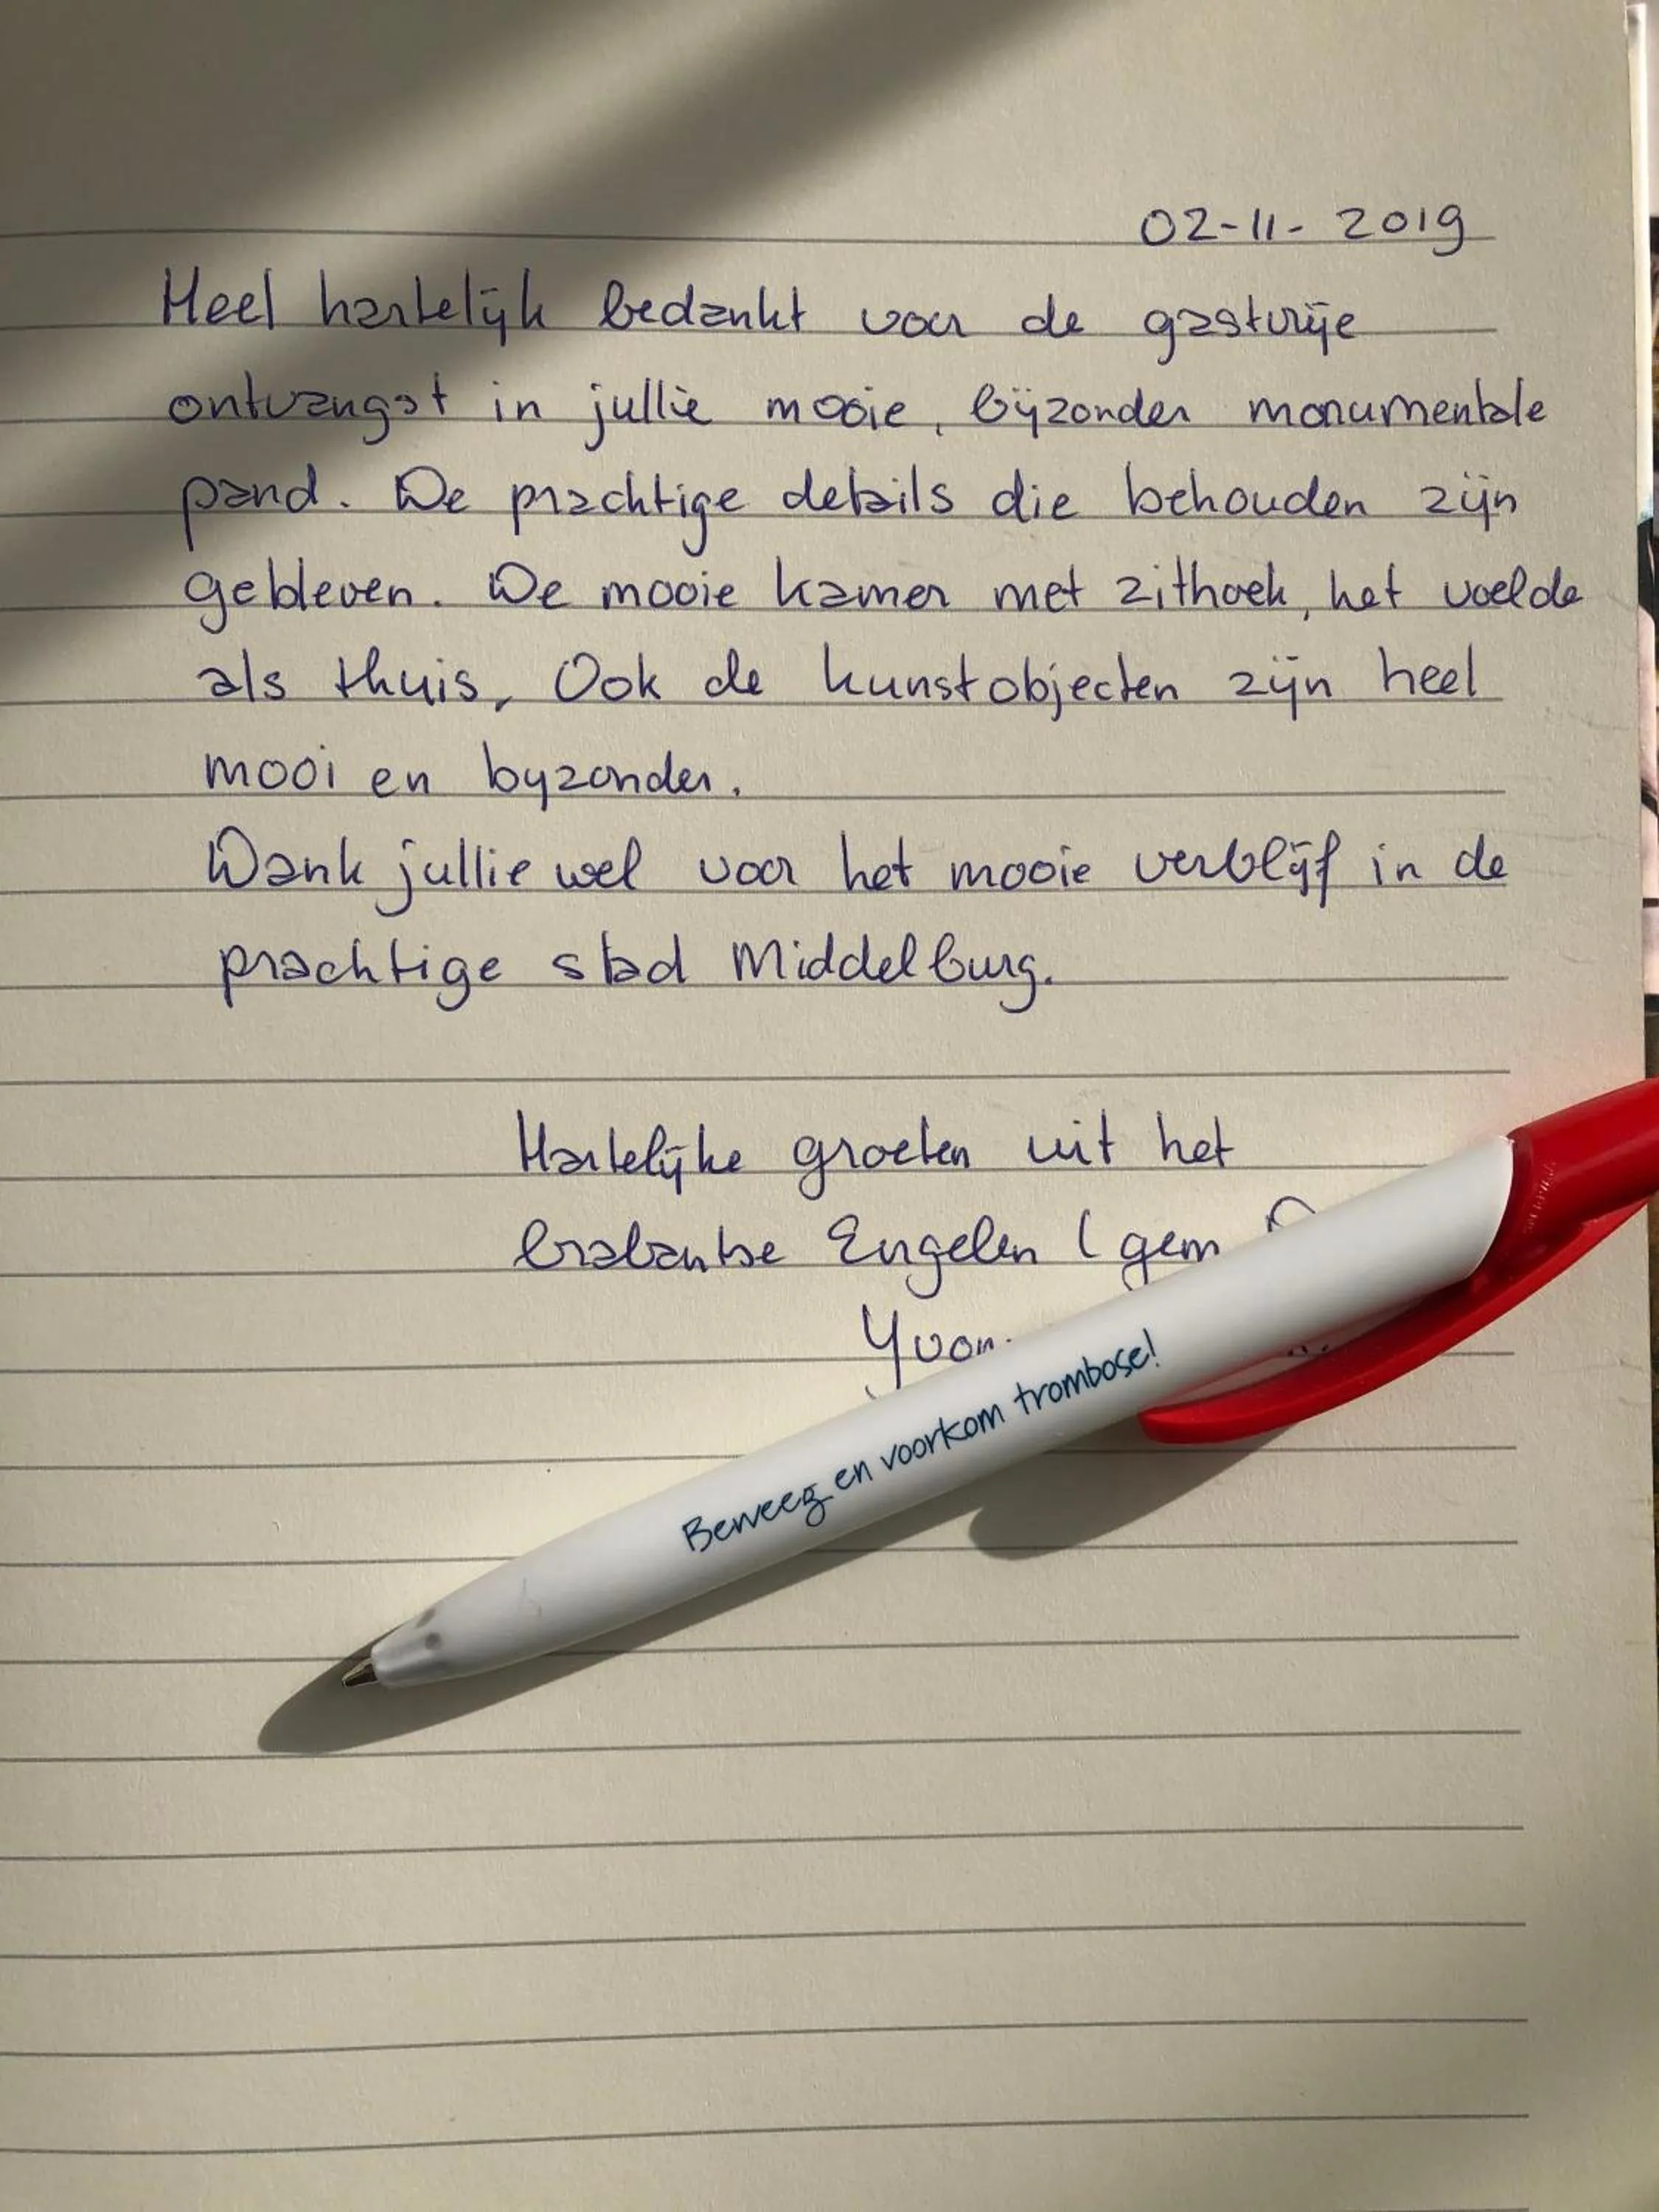 02-11-2019
Heel hartelijk bedankt voor de gastvrije
ontvangst in jullie mooie, bijzonder monumentale
pand. De prachtige details die behouden zijn
gebleven. De mooie kamer met zithoek, het voelde
als thuis, Ook de kunstobjecten zijn heel
mooi en byzonder.
Dank jullie wel voor het mooie verblijf in de
prachtige stad Middelburg.
Hartelijke groeten uit het
brabantse Engelen (gem
Beweeg en voorkom trombose!